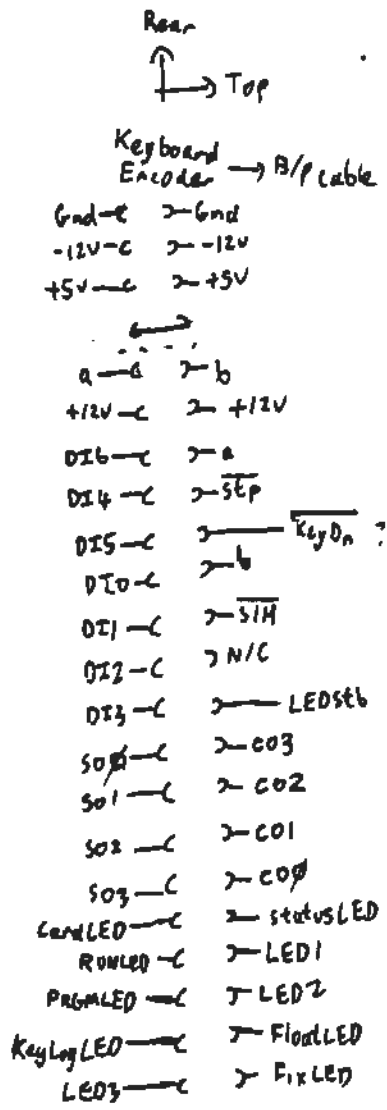 Rear
Top
Keyboard
Encoder → B/P cable
Gnd Gnd
-12V -12V
+5V +5V
a b
+12V +12V
DI6 a
DI4 Stp
DI5 KeyDn ?
DI0 b
DI1 S/H
DI2 N/C
DI3 LEDStb
SOØ CO3
SO1 CO2
SO2 CO1
SO3 COØ
CardLED StatusLED
RUNLED LED1
PRGMLED LED2
KeyLogLED FloatLED
LED3 FixLED